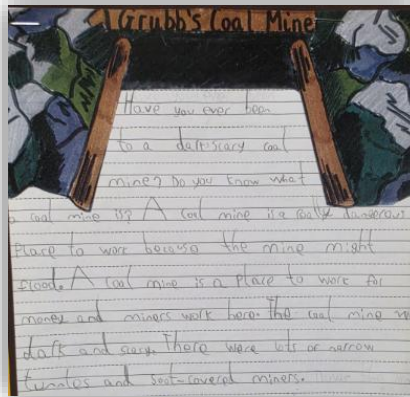 Grubb's Coal Mine
Have you ever been
to a dark scary coal
mine? Do you know what
a coal mine is? A coal mine is a really dangerous
Place to work because the mine might
flood. A coal mine is a place to work for
money and miners work here. The coal mine
dark and scary. There were lots of narrow
tunnles and soot-covered miners.